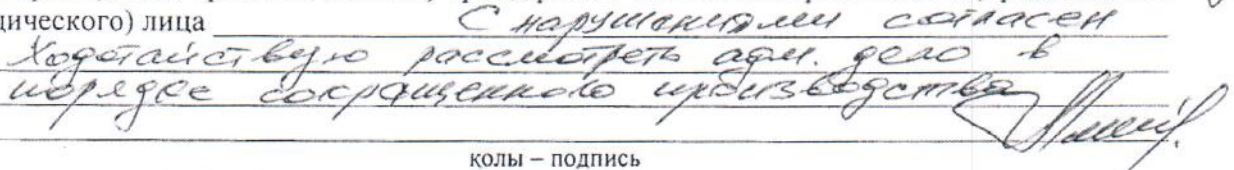 дического) лица С нарушениями согласен
Ходатайствую рассмотреть адм. дело в
порядке сокращенного производства
қолы – подпись